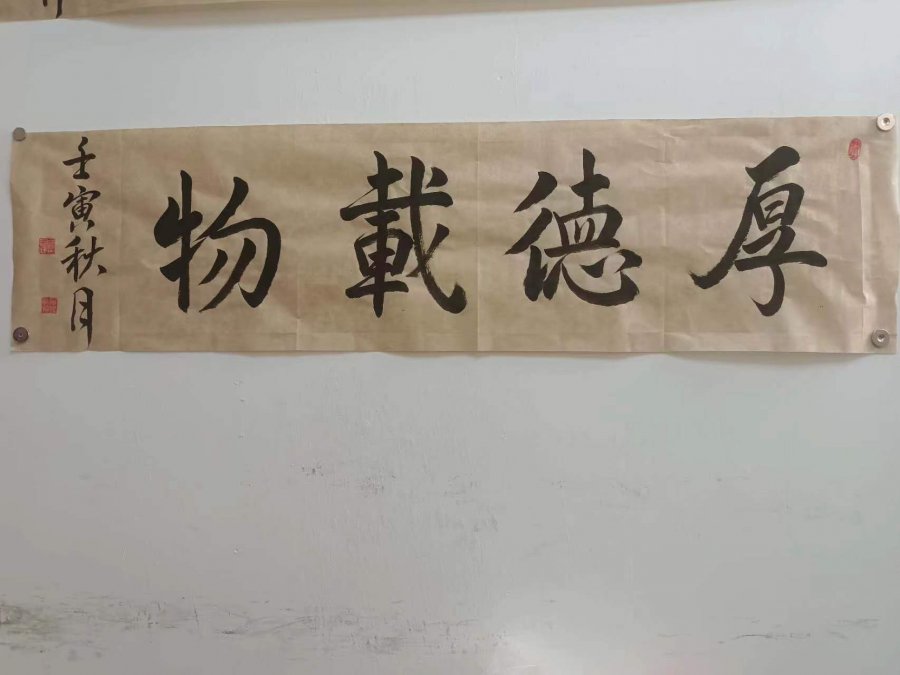 厚德載物
壬寅秋月